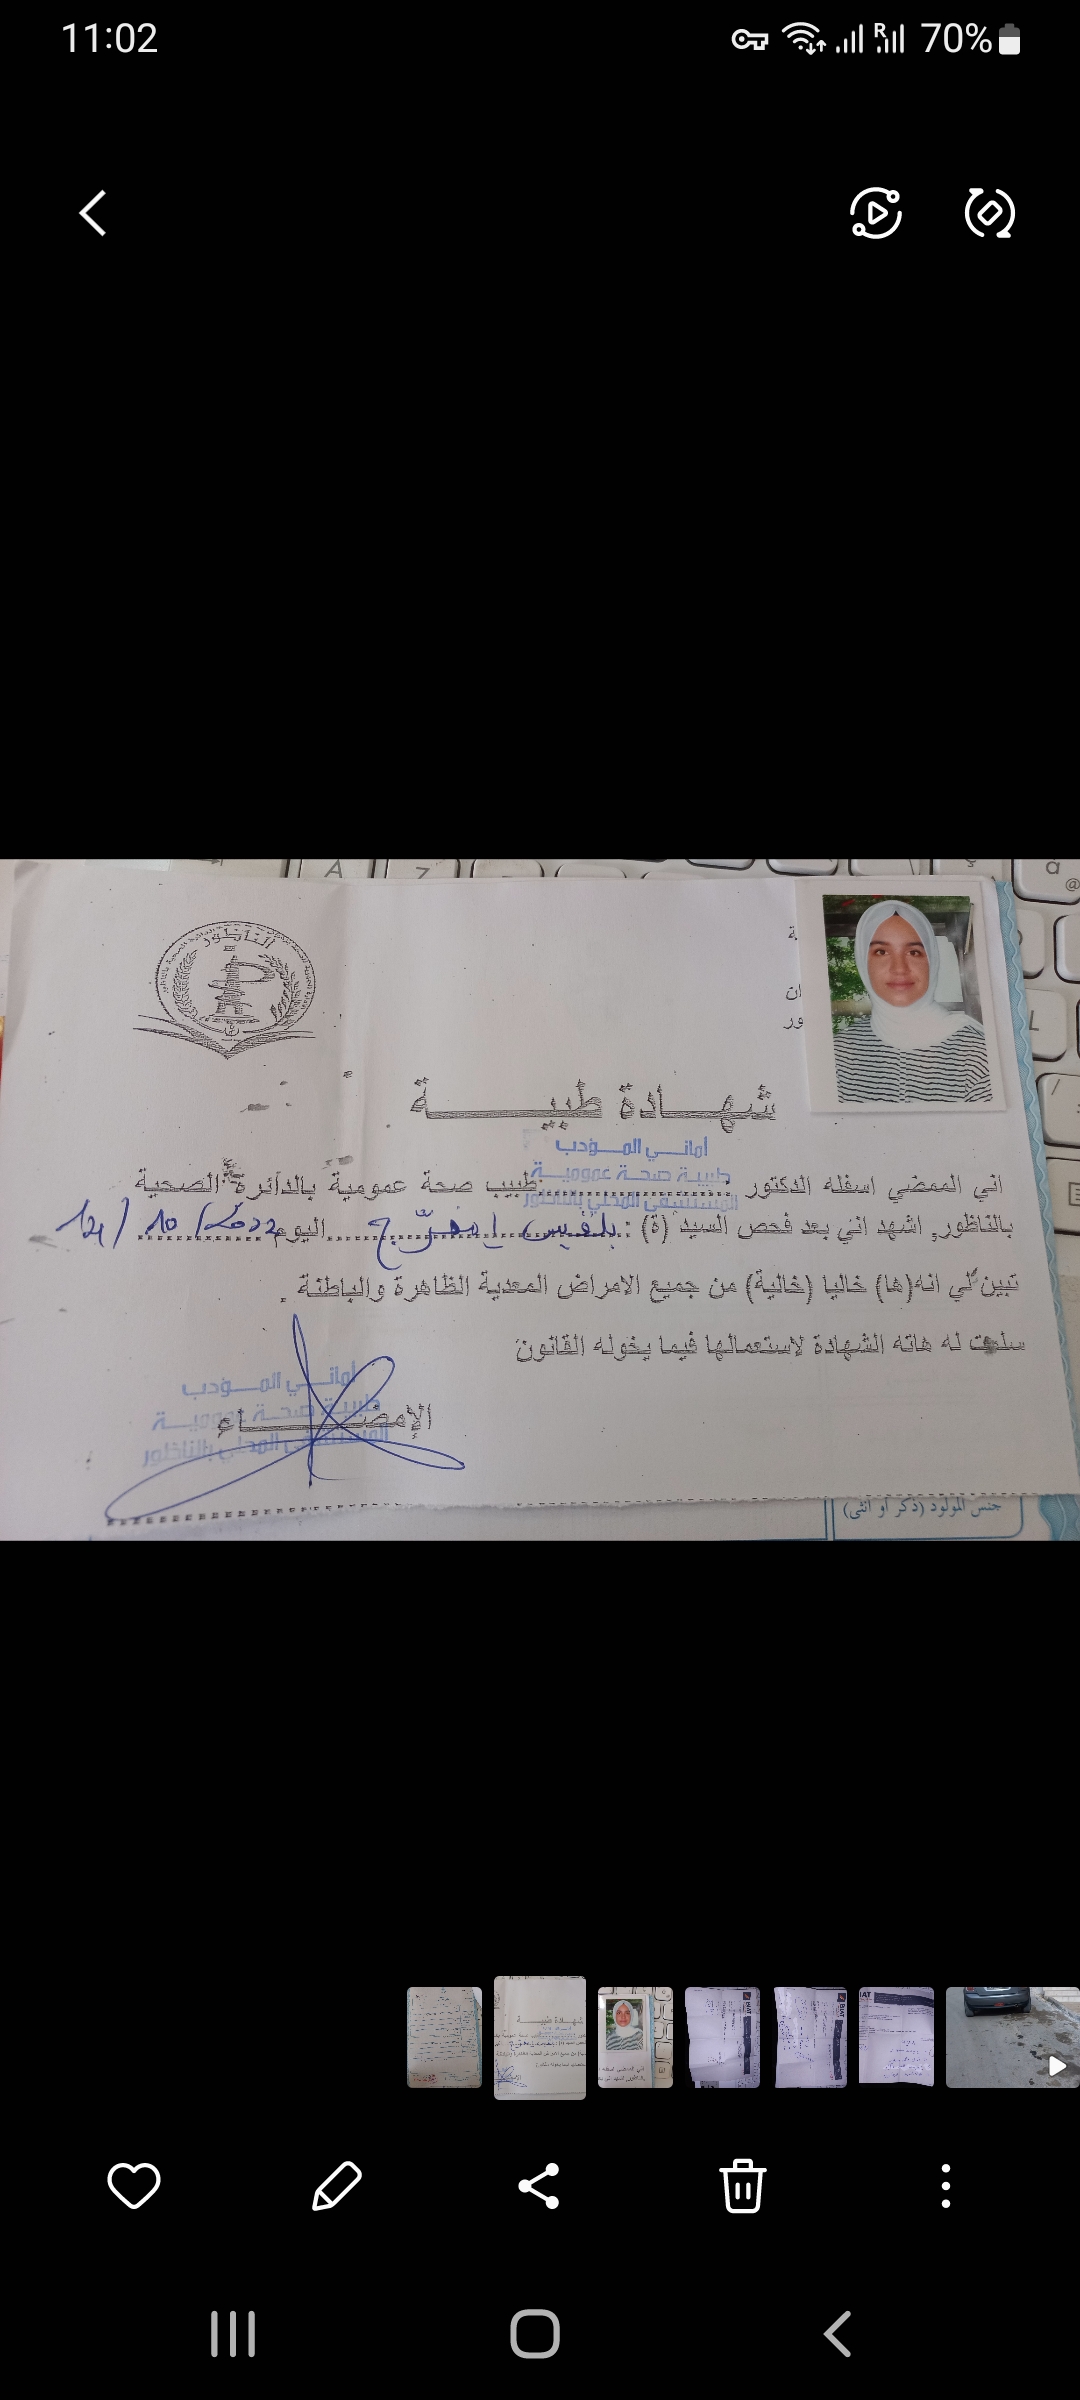 11:02
R
70%
A
Z
@
L
/
الناظور
ـة
ان
ور
شهـــادة طبيـــــــــة
أمانــي المــؤدب
طبيبة صحة عموميـة
المستشفى المحلي بالناظور
اني الممضي اسفله الدكتور ............ طبيب صحة عمومية بالدائرة الصحية
بالناظور, اشهد اني بعد فحص السيد (ة) : بلقيس ........ اليوم 2022/ 10 /12
تبين لي انه(ها) خاليا (خالية) من جميع الامراض المعدية الظاهرة والباطنة .
سلمت له هاته الشهادة لاستعمالها فيما يخوله القانون
أمانــي المــؤدب
طبيبة صحة عموميـة
المستشفى المحلي بالناظور
الإمضـــــــاء
جنس المولود (ذكر او انثى)